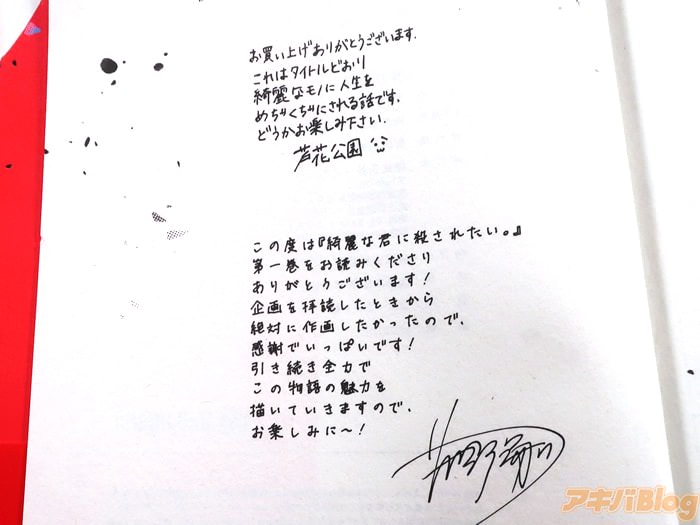 お買い上げありがとうございます.
これはタイトルどおり
綺麗なモノに人生を
めちゃくちゃにされる話です.
どうかお楽しみ下さい.
芦花公園
この度は『綺麗な君に殺されたい。』
第一巻をお読みくださり
ありがとうございます！
企画を拝読したときから
絶対に作画したかったので、
感謝でいっぱいです！
引き続き全力で
この物語の魅力を
描いていきますので、
お楽しみに〜！
アキバBlog